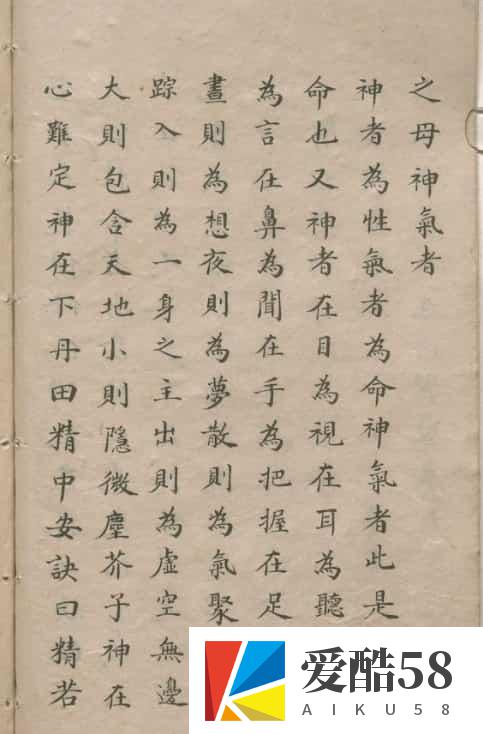 之母神氣者
神者為性氣者為命神氣者此是
命也又神者在目為視在耳為聽
為言在鼻為聞在手為把握在足
晝則為想夜則為夢散則為氣聚
踪入則為一身之主出則為虛空無邊
大則包含天地小則隱微塵芥子神在
心難定神在下丹田精中安訣曰精若
爱酷58
AIKU58